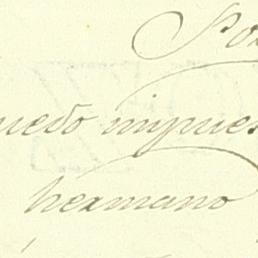 Por
quedo impues
hermano